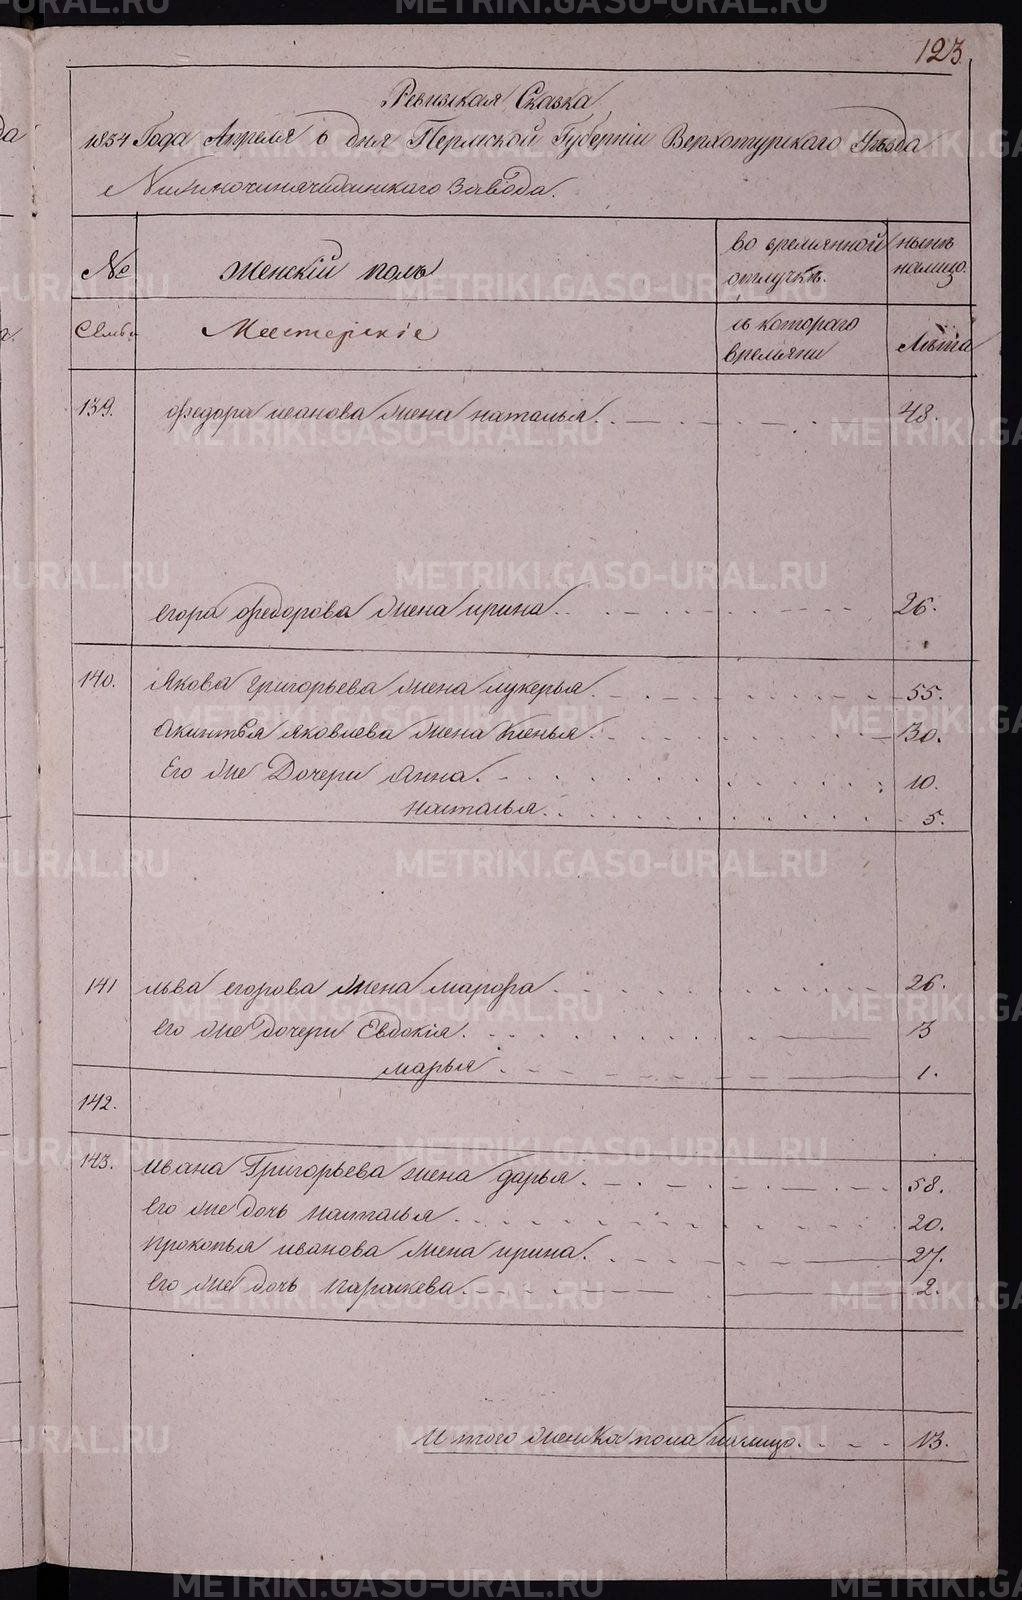 123.
Ревизская Сказка
1854 Года Апреля 6 дня Пермской Губернiи Верхотурскаго Уѣзда
Завода.
№ Женскiй полъ во времянной отлучкѣ. нынѣ налицо.
Семьи Мастерскiе съ котораго времяни Лѣта
139. федора иванова жена наталья. 48.
егора федорова жена ирина. 26.
140. Якова григорьева жена лукерья. 55.
Акинтья яковлева жена Ксенья. 30.
Его же Дочери Анна. 10.
Наталья. 5.
141 льва егорова жена марфа 26.
его же дочери Евдокiя. 3
марья 1.
142.
143. ивана Григорьева жена дарья. 58.
его же дочь Наталья 20.
прокопья иванова жена ирина. 27.
его же дочь парасковья. 2.
Итого женска пола налицо. 13.
METRIKI.GASO-URAL.RU